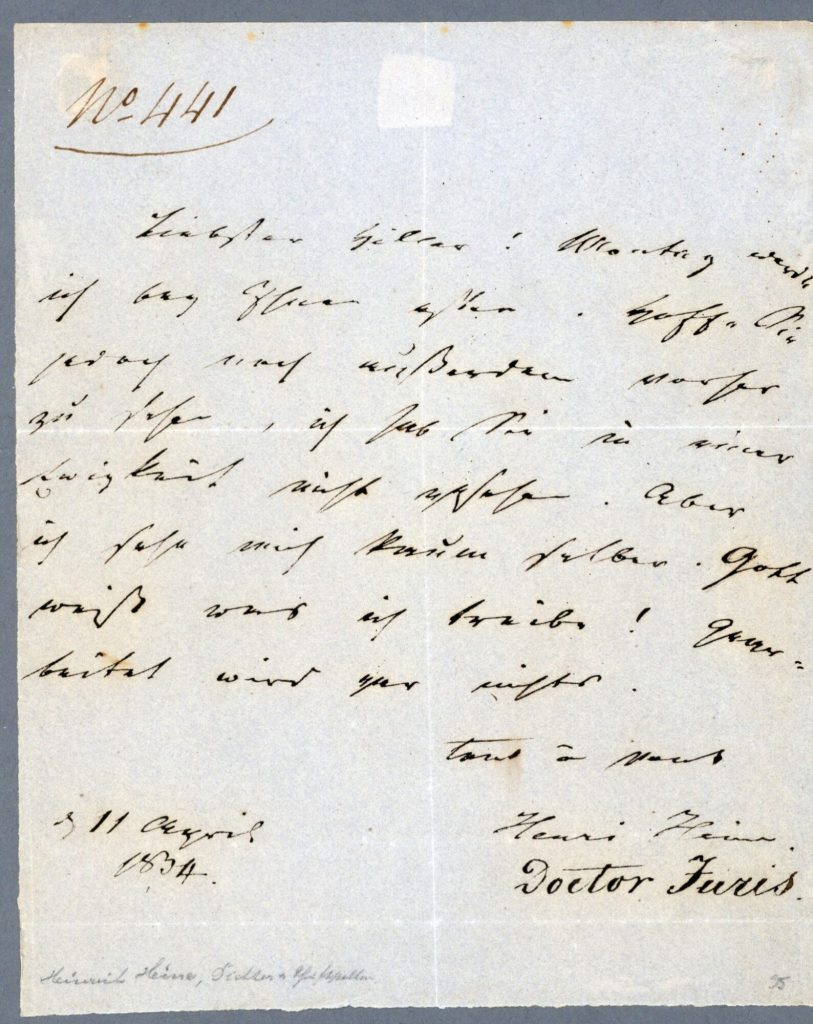 No 441
Liebster Hiller! Montag werde
ich bey Ihnen essen. Hoffe Sie
jedoch noch außerdem vorher
zu sehen, ich hab Sie in einer
Ewigkeit nicht gesehen. Aber
ich sehe mich kaum selber. Gott
weiß was ich treibe! Gear-
beitet wird gar nichts.
tout à vous
d 11 April
1834.
Henri Heine.
Doctor Juris.
Heinrich Heine, Dichter u. Schriftsteller